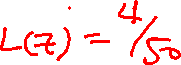 L(z) = 4/50